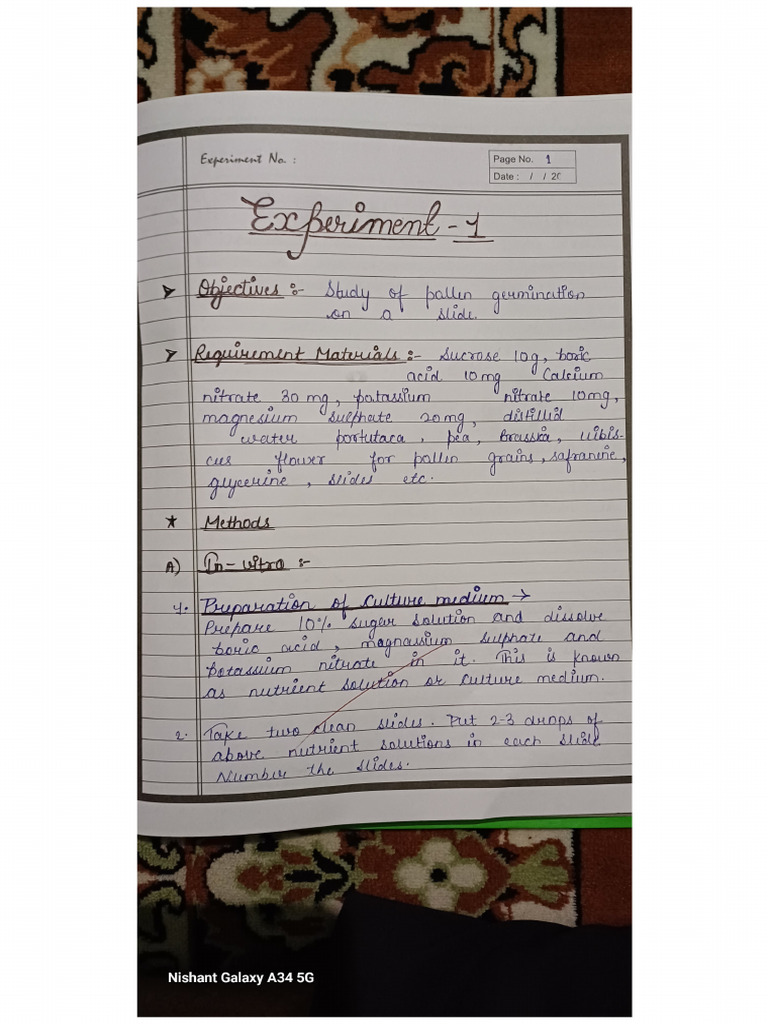 Experiment No. :
Page No. 1
Date : / / 20
Experiment - 1
Objectives :- Study of pollen germination
on a slide.
Requirement Materials :- Sucrose 10g, boric
acid 10 mg Calcium
nitrate 30 mg, potassium nitrate 10mg,
magnesium sulphate 20mg, distilled
water portutaca, pea, Brassica, Hibis-
cus flower for pollen grains, safranine,
glycerine, slides etc.
★ Methods
A) In-vitro :-
1. Preparation of culture medium →
Prepare 10% sugar solution and dissolve
boric acid, magnassium sulphate and
potassium nitrate in it. This is known
as nutrient solution or culture medium.
2. Take two clean slides. Put 2-3 drops of
above nutrient solutions in each slide
Number the slides.
Nishant Galaxy A34 5G